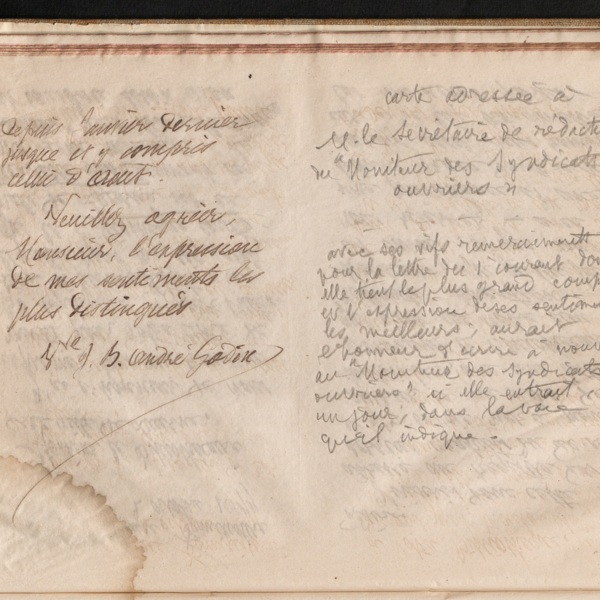 depuis Janvier dernier
jusque et y compris
celui d'août.
Veuillez agréer,
Monsieur, l'expression
de mes sentiments les
plus distingués
Vve J. B. André Godin
carte adressée à
M. le secrétaire de rédacti
du "Moniteur des Syndicats
ouvriers"
avec ses vifs remerciements
pour la lettre du 1r courant don
elle tient le plus grand comp
et l'expression de ses sentime
les meilleurs; aurait
l'honneur d'écrire à nouv
au "Moniteur des Syndicats
ouvriers" si elle entrait,
un jour, dans la voie
qu'il indique.